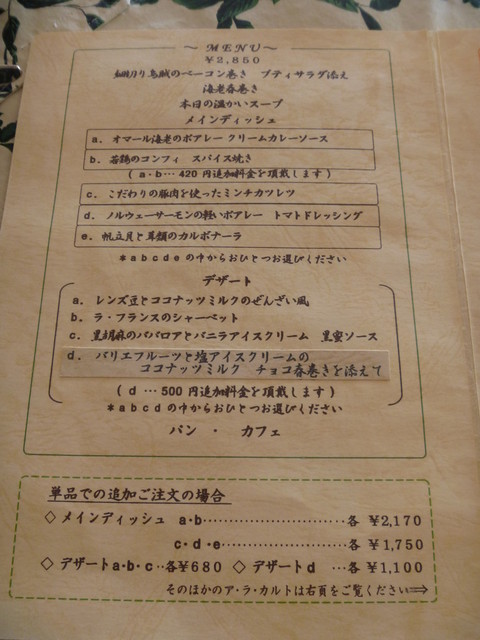 ～ MENU ～
￥2,850
細切り烏賊のベーコン巻き プティサラダ添え
海老春巻き
本日の温かいスープ
メインディッシュ
a. オマール海老のポアレー クリームカレーソース
b. 若鶏のコンフィ スパイス焼き
(a・b… 420 円追加料金を頂戴します)
c. こだわりの豚肉を使ったミンチカツレツ
d. ノルウェーサーモンの軽いポアレー トマトドレッシング
e. 帆立貝と茸類のカルボナーラ
＊abcdeの中からおひとつお選びください
デザート
a. レンズ豆とココナッツミルクのぜんざい風
b. ラ・フランスのシャーベット
c. 黒胡麻のババロアとバニラアイスクリーム 黒蜜ソース
d. バリエフルーツと塩アイスクリームの
ココナッツミルク チョコ春巻きを添えて
(d … 500 円追加料金を頂戴します)
＊abcdの中からおひとつお選びください
パン ・ カフェ
単品での追加ご注文の場合
◇メインディッシュ a・b……………………各 ￥2,170
c・d・e……………………各 ￥1,750
◇デザートa・b・c‥各￥680 ◇デザートd …各 ￥1,100
そのほかのア・ラ・カルトは右頁をご覧ください⇒